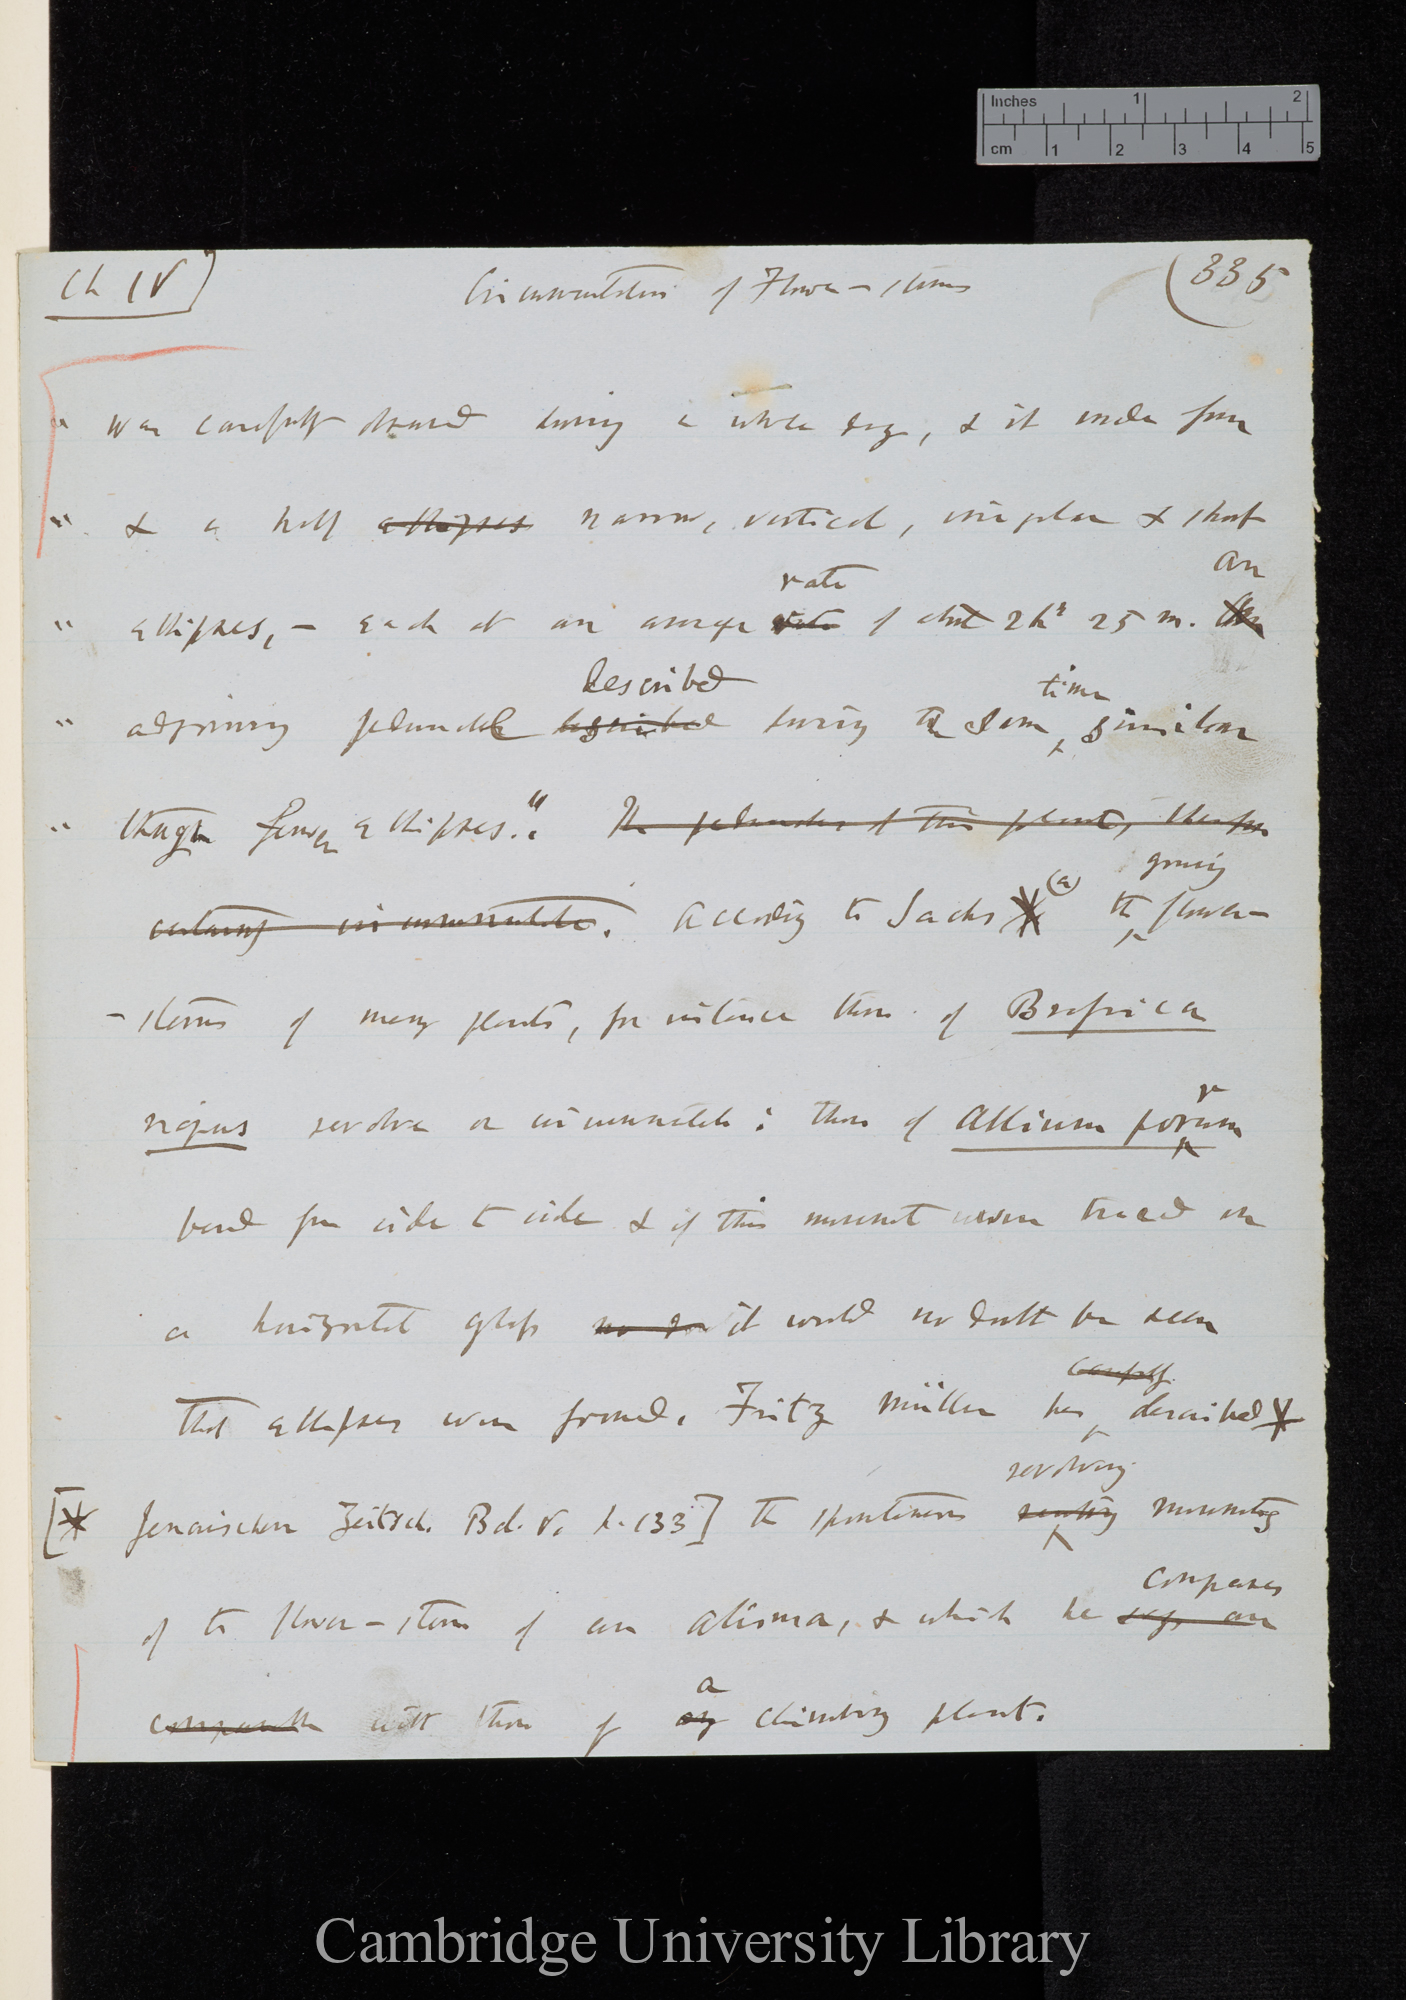 Inches 1 2
cm 1 2 3 4 5
Ch IV
Circumnutation of Flower-stems
(335
" was carefully observed during a whole day, & it made four
" & a half ellipses narrow, vertical, irregular & short
rate
An
" ellipses, – each at an average rate of about 2 hs 25 m. An
described
time
" adjoining peduncle described during the same similar
" though fewer ellipses.". The peduncles of this plant, therefore
certainly circumnutate. According to Sachs * (a) the flower-
growing
-stems of many plants, for instance those of Brassica
napus revolve or circumnutate: those of Allium porrum
bend from side to side & if this movement were traced on
a horizontal glass no doubt it would no doubt be seen
that ellipses were formed. Fritz Müller has described *
carefully
revolving
[* Jenaischen Zeitsch. Bd. V. p. 133] the spontaneous movements
of the flower-stems of an Alisma, & which he says are
compares
comparable with those of any climbing plant.
a
Cambridge University Library